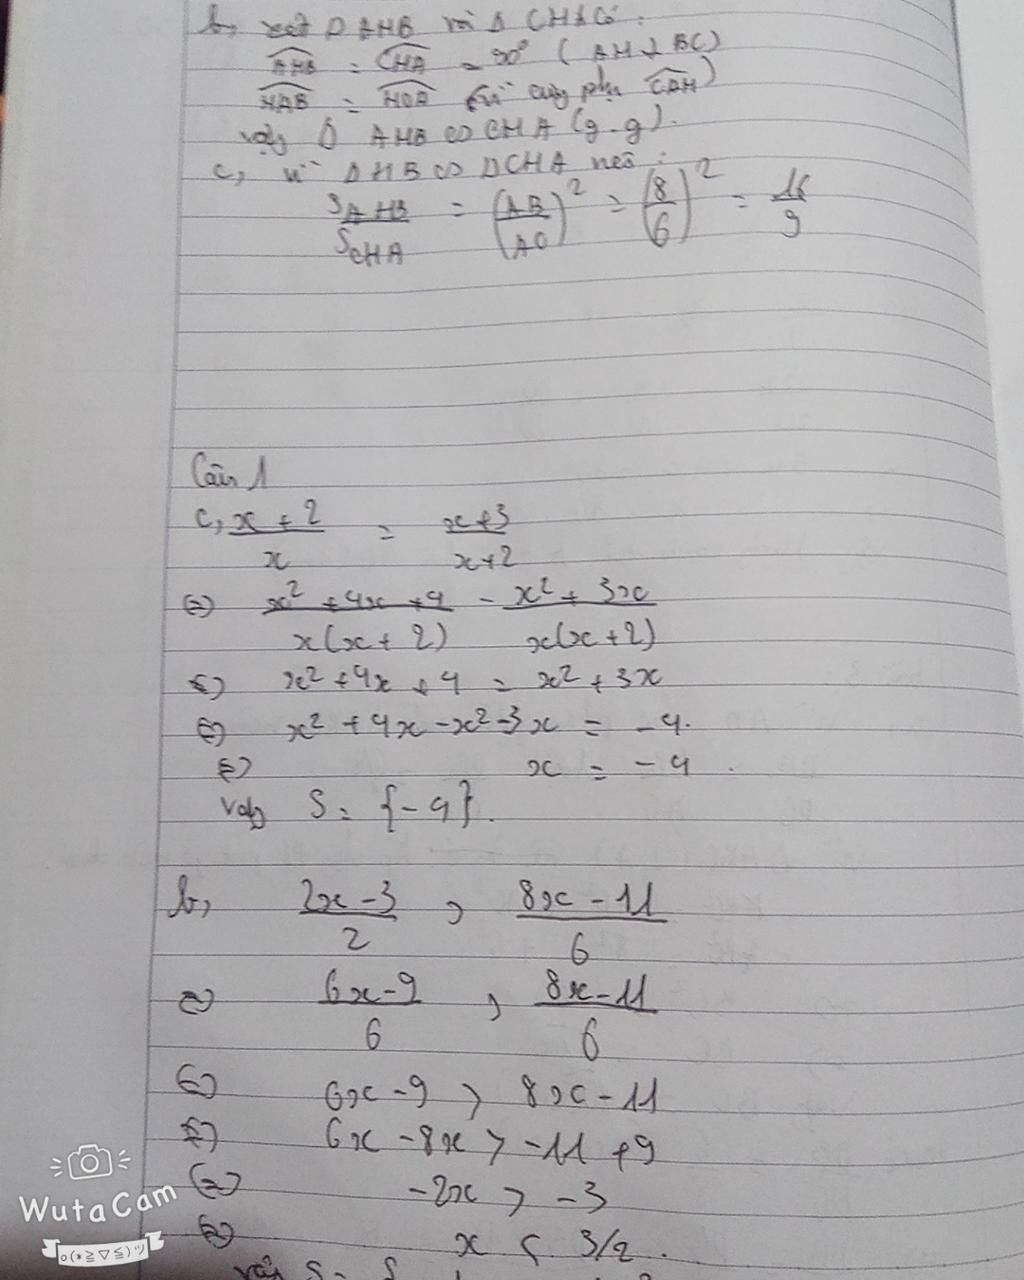 b, xét Δ AHB và Δ CHA có:
AHB = CHA = 90° ( AH ⊥ BC)
HAB = HCA (vì cùng phụ CAH)
vậy Δ AHB ∽ CHA (g-g).
c, vì ΔHB ∽ ΔCHA nên:
S AHB / S CHA = (AB/AC)² = (8/6)² = 16/9
Câu 1
c, x + 2 / x = x+3 / x+2
(=) x² + 4x + 4 / x(x + 2) - x² + 3x / x(x + 2)
(=) x² + 4x + 4 = x² + 3x
(=) x² + 4x - x² - 3x = -4.
(=) x = -4.
Vậy S = {-4}.
b, 2x - 3 / 2 > 8x - 11 / 6
(=) 6x - 9 / 6 > 8x - 11 / 6
(=) 6x - 9 > 8x - 11
(=) 6x - 8x > -11 + 9
(=) -2x > -3
(=) x < 3/2.
vậy S =
WutaCam
o(*≧▽≦)ツ